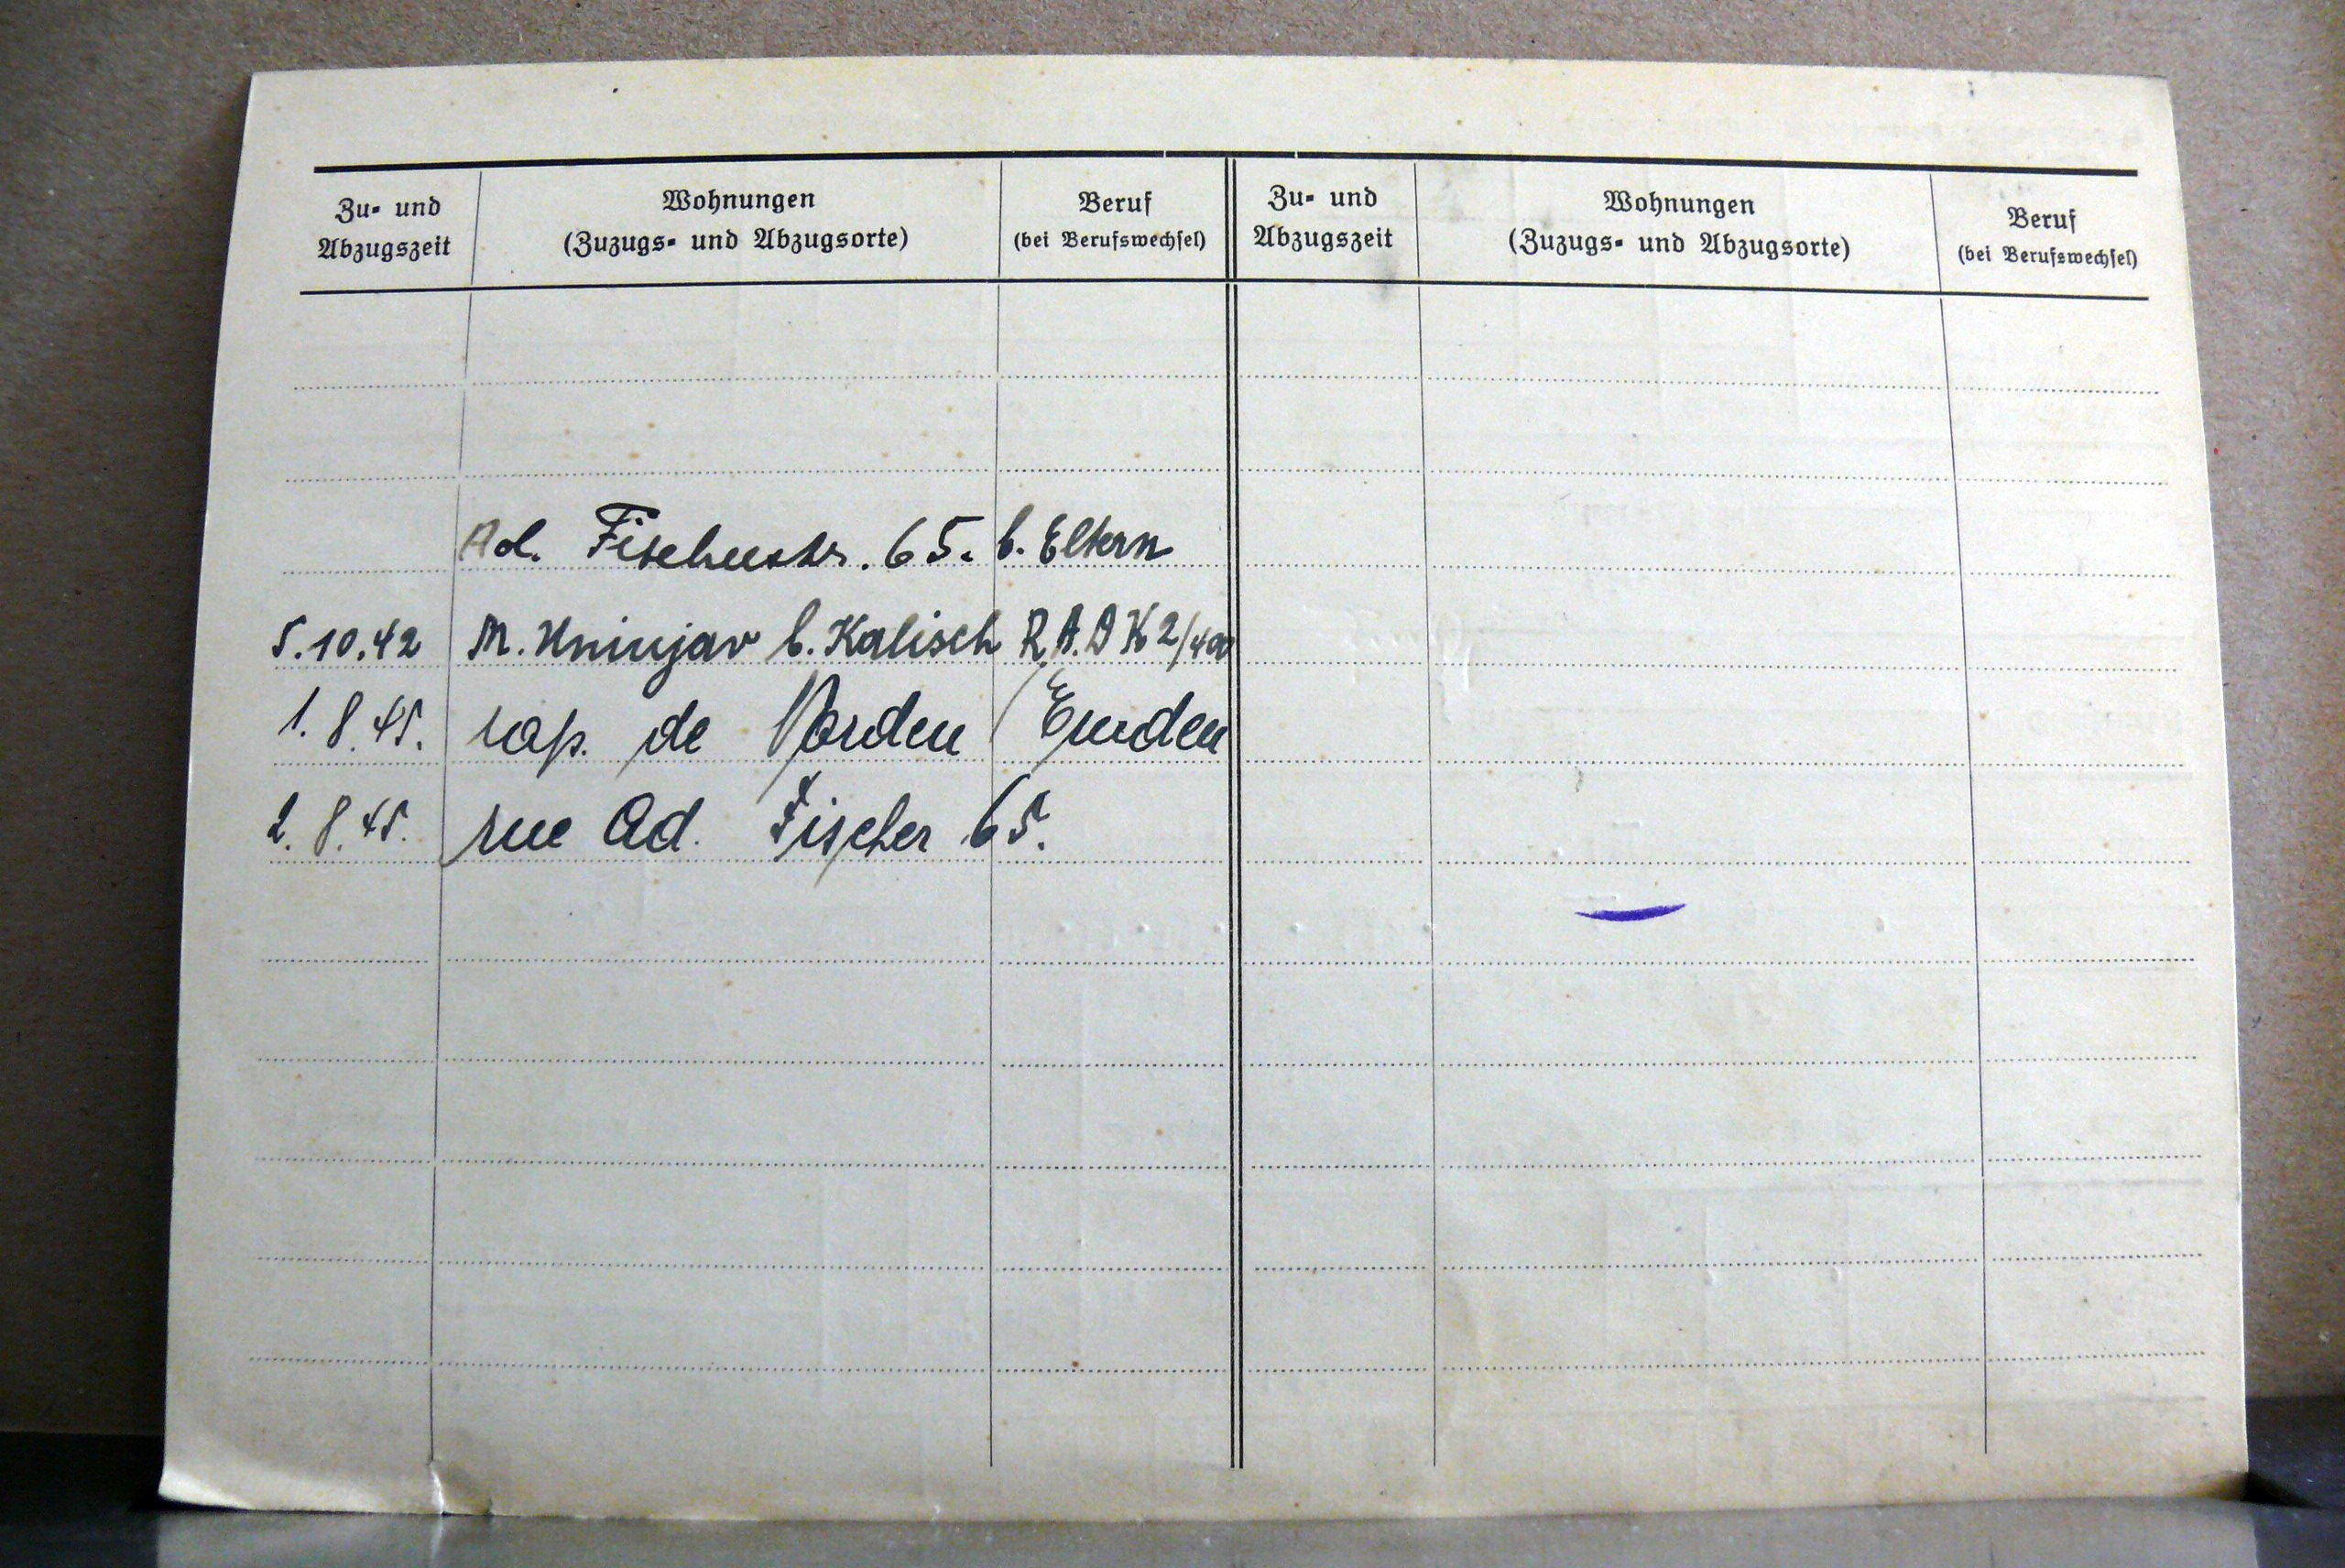 Zu- und Abzugszeit
Wohnungen
(Zuzugs- und Abzugsorte)
Beruf
(bei Berufswechsel)
Zu- und Abzugszeit
Wohnungen
(Zuzugs- und Abzugsorte)
Beruf
(bei Berufswechsel)
Ad. Fischerstr. 65. b. Eltern
5.10.42 M. Uniejav b. Kalisch R.A.D K 2/40
1.8.45. rap. de Norden / Emden
2.8.45. rue Ad. Fischer 65.